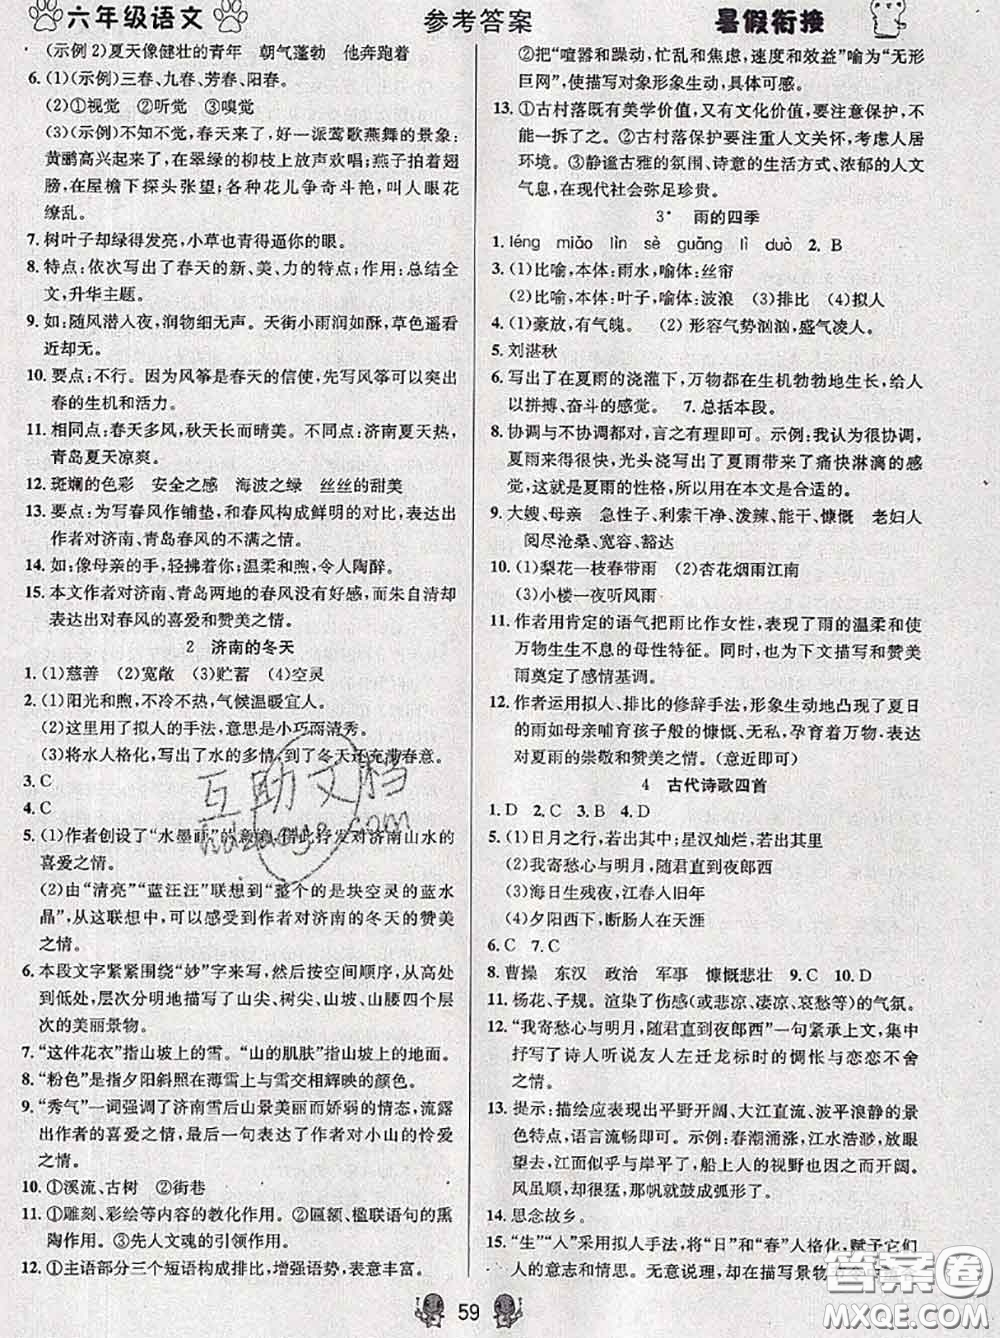 六年级语文
参考答案
暑假衔接
(示例2)夏天像健壮的青年　朝气蓬勃　他奔跑着
6. (1)(示例)三春、九春、芳春、阳春。
(2)①视觉　②听觉　③嗅觉
(3)(示例)不知不觉,春天来了,好一派莺歌燕舞的景象:
黄鹂高兴起来了,在翠绿的柳枝上放声欢唱;燕子拍着翅
膀,在屋檐下探头张望;各种花儿争奇斗艳,叫人眼花
缭乱。
7. 树叶子却绿得发亮,小草也青得逼你的眼。
8. 特点:依次写出了春天的新、美、力的特点;作用:总结全
文,升华主题。
9. 如:随风潜入夜,润物细无声。天街小雨润如酥,草色遥看
近却无。
10. 要点:不行。因为风筝是春天的信使,先写风筝可以突出
春的生机和活力。
11. 相同点:春天多风,秋天长而晴美。不同点:济南夏天热,
青岛夏天凉爽。
12. 斑斓的色彩　安全之感　海波之绿　丝丝的甜美
13. 要点:为写春风作铺垫,和春风构成鲜明的对比,表达出
作者对济南、青岛春风的不满之情。
14. 如:像母亲的手,轻拂着你;温柔和煦,令人陶醉。
15. 本文作者对济南、青岛两地的春风没有好感,而朱自清却
表达出对春风的喜爱和赞美之情。
2　济南的冬天
1. (1)慈善　(2)宽敞　(3)贮蓄　(4)空灵
2. (1)阳光和煦,不冷不热,气候温暖宜人。
(2)这里用了拟人的手法,意思是小巧而清秀。
(3)将水人格化,写出了水的多情,到了冬天还充满春意。
3. C
4. C
5. (1)作者创设了“水墨画”的意境,借此抒发对济南山水的
喜爱之情。
(2)由“清亮”“蓝汪汪”联想到“整个的是块空灵的蓝水
晶”,从这联想中,我们可以感受到作者对济南的冬天的赞美
之情。
6. 本段文字紧紧围绕“妙”字来写,然后按空间顺序,从高
到低处,层次分明地描写了山尖、树尖、山坡、山腰四个层
次的美丽景物。
7. “这件花衣”指山坡上的雪。“山的肌肤”指山坡上的地面。
8. “粉色”是指夕阳斜照在薄雪上与雪交相辉映的颜色。
9. “秀气”一词强调了济南雪后山景美丽而娇弱的情态,流露
出作者的喜爱之情。最后一句表达了作者对小山的怜爱
之情。
10. ①溪流、古树　②街巷
11. ①雕刻、彩绘等内容的教化作用。②匾额、楹联语句的熏
陶作用。③先人文魂的引领作用。
12. ①主语部分三个短语构成排比,增强语势,表意丰富。
②把“喧嚣和躁动,忙乱和焦虑,速度和效益”喻为“无形
巨网”,使描写对象形象生动,具体可感。
13. ①古村落既有美学价值,又有文化价值,要注意保护,不
能一拆了之。②古村落保护要注重人文关怀,考虑人居
环境。③静谧古雅的氛围、诗意的生活方式、浓郁的人文
气息,在现代社会弥足珍贵。
3*　雨的四季
1. léng　miǎo　lìn　sè　guāng　lì　duò　2. B
3. (1)比喻,本体:雨水,喻体:丝帘
(2)比喻,本体:叶子,喻体:波浪　(3)排比　(4)拟人
4. (1)豪放,有气魄。　(2) 形容气势汹汹,盛气凌人。
5. 刘湛秋
6. 写出了在夏雨的浇灌下,万物都在生机勃勃地生长,给人
以拼搏、奋斗的感觉。　7. 总括本段。
8. 协调与不协调都对,言之有理即可。示例:我认为很协调,
夏雨来得很快,光头浇写出了夏雨带来了痛快淋漓的感
觉,这就是夏雨的性格,所以用在本文是合适的。
9. 大嫂、母亲　急性子、利索干净、泼辣、能干、慷慨　老妇人
阅尽沧桑、宽容、豁达
10. (1)梨花一枝春带雨　(2)杏花烟雨江南
(3)小楼一夜听风雨
11. 作者用肯定的语气把雨比作女性,表现了雨的温柔和使
万物生生不息的母性特征。同时,也为下文描写和赞美
雨奠定了感情基调。
12. 作者运用拟人、排比的修辞手法,形象生动地凸现了夏日
的雨如母亲哺育孩子般的慷慨、无私,孕育着万物,表达
对夏雨的崇敬和赞美之情。(意近即可)
4　古代诗歌四首
1. D　2. C　3. B　4. D
5. (1)日月之行,若出其中;星汉灿烂,若出其里
(2)我寄愁心与明月,随君直到夜郎西
(3)海日生残夜,江春入旧年
(4)夕阳西下,断肠人在天涯
6. C　7. C
8. 曹操　东汉　政治　军事　慷慨悲壮　9. C　10. D
11. 杨花、子规。渲染了伤感(或悲凉、凄凉、哀愁等)的气氛。
12. “我寄愁心与明月,随君直到夜郎西”一句紧承上文,集中
抒写了诗人听说友人左迁龙标时的惆怅与恋恋不舍
之情。
13. 提示:描绘应表现出平野开阔、大江直流、波平浪静的景
色特点,语言流畅即可。示例:春潮涌涨,江水浩渺,放眼
望去,江面似乎与岸平了,船上人的视野也因之开阔。
风虽顺,却很猛,那帆就成弧形了。
14. 思念故乡。
15. “生”“入”采用拟人手法,将“日”和“春”人格化,赋予它们
人的意志和情思。无意说理,却在描写景物
59
互助文档
hdzuoye.com
答案圈
MXQE.COM